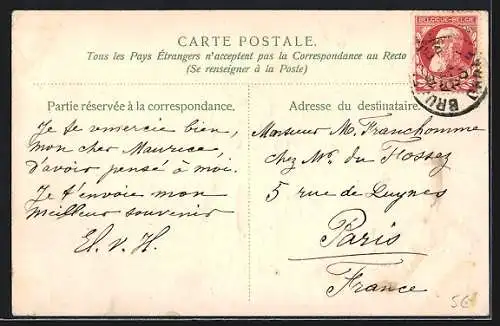 CARTE POSTALE.
Tous les Pays Étrangers n'acceptent pas la Correspondance au Recto
(Se renseigner à la Poste)
BELGIQUE-BELGIË
Partie réservée à la correspondance.
Je te remercie bien,
mon cher Maurice,
d'avoir pensé à moi.
Je t'envoie mon
meilleur souvenir
El. v. H.
Adresse du destinataire.
Monsieur M. Franchomme
chez Mr. du Fossez
5 rue de Luynes
Paris
France
5€